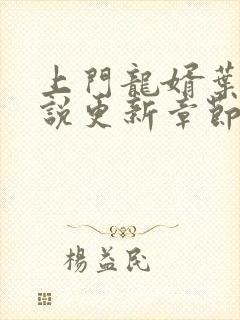 上門龍婿葉
說更新章節
楊益民